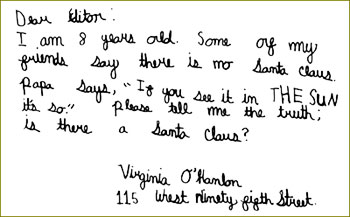 Dear Editor:
I am 8 years old. Some of my
friends say there is no Santa Claus.
Papa says, "If you see it in THE SUN
it's so." Please tell me the truth;
is there a Santa Claus?
Virginia O'Hanlon
115 West Ninety fifth Street.